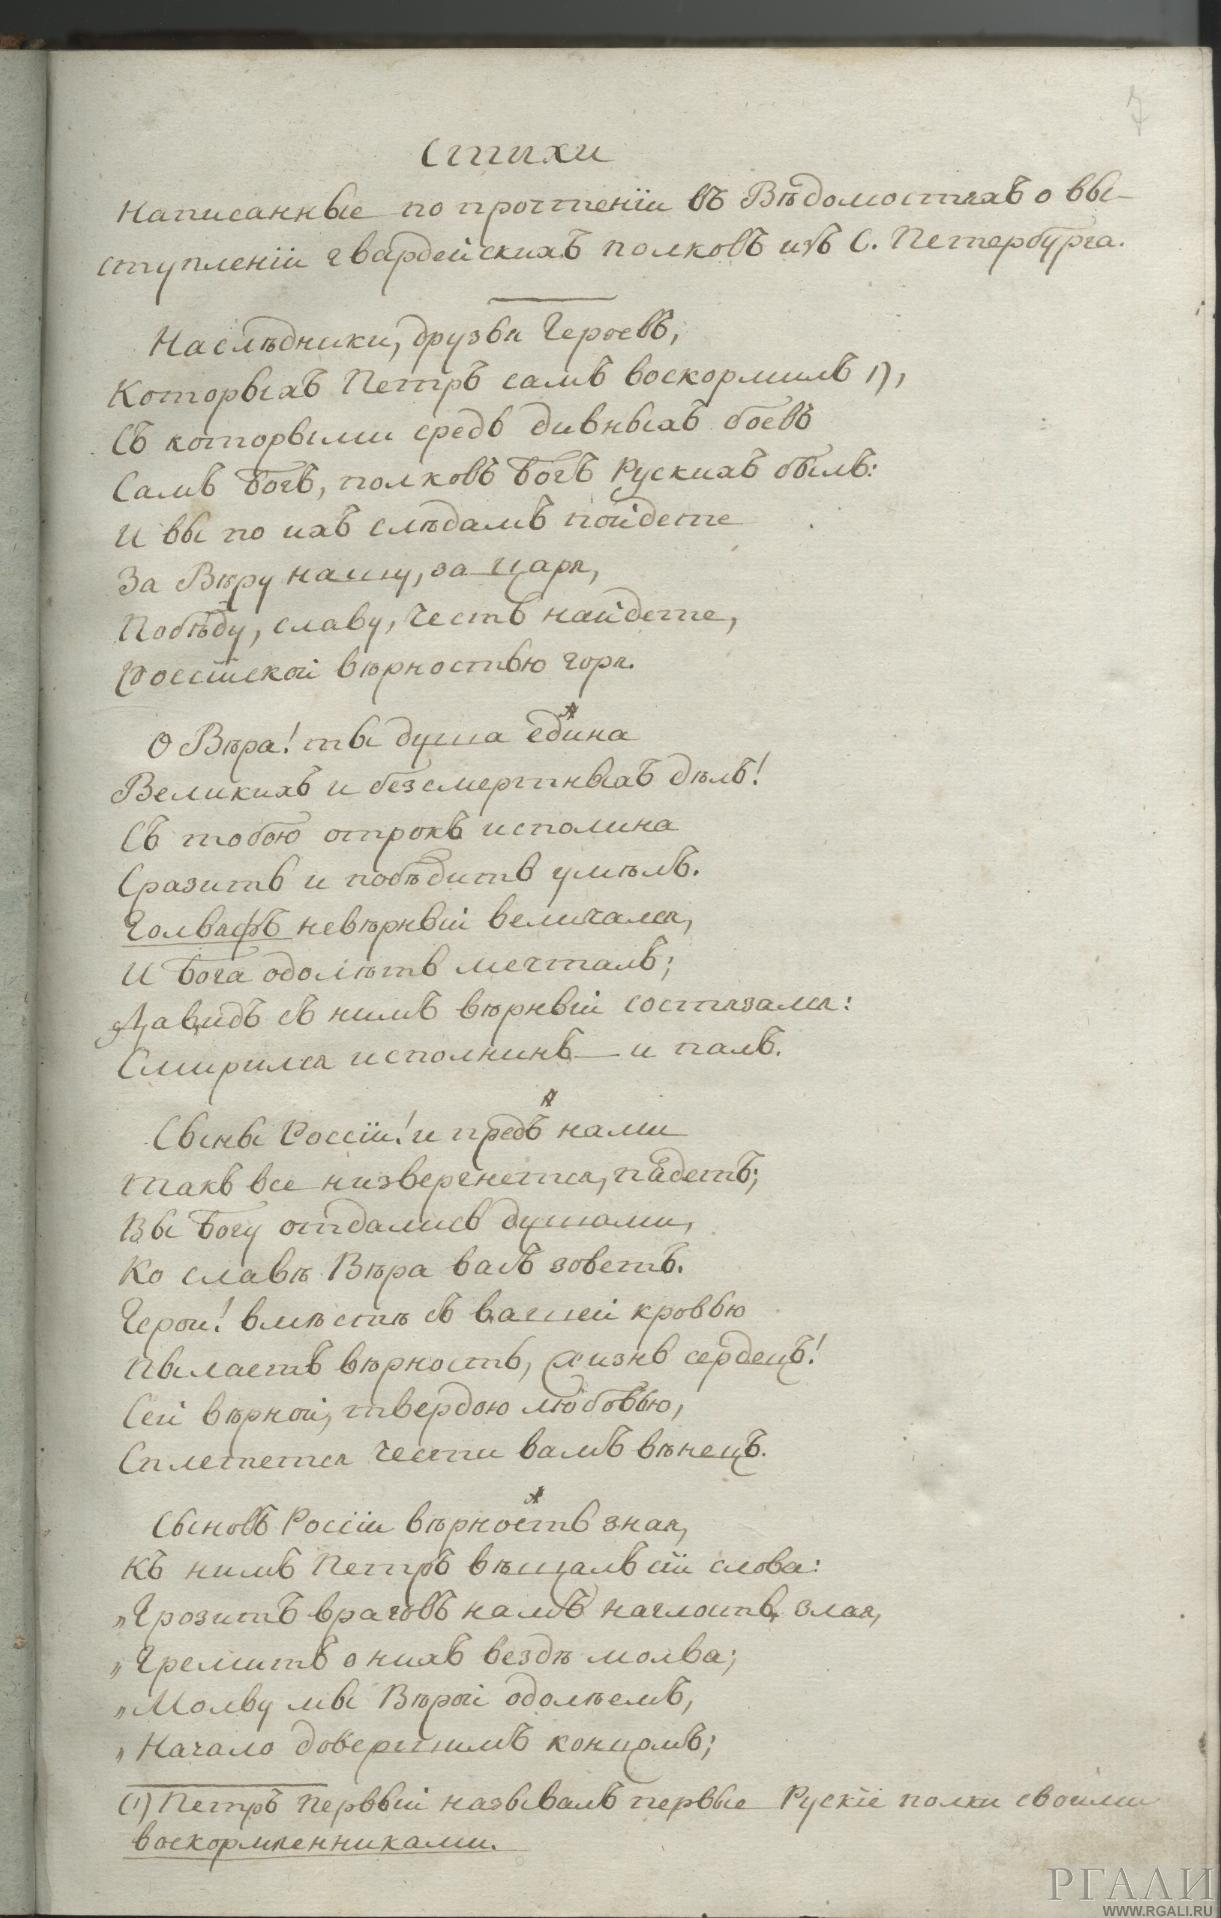 7
Стихи
Написанные по прочтенiи въ Вѣдомостяхъ о вы-
ступленiи гвардейскихъ полковъ изъ С. Петербурга.
Наслѣдники, друзья Героевъ,
Которыхъ Петръ самъ воскормилъ 1),
Съ которыми средь дивныхъ боевъ
Самъ Богъ, полковъ Богъ Рускихъ былъ:
И вы по ихъ слѣдамъ пойдете
За Вѣру нашу, за царя,
Побѣду, славу, честь найдете,
Россiйской вѣрностью горя.
О Вѣра! ты душа едина
Великихъ и безсмертныхъ дѣлъ!
Съ тобою отрокъ исполина
Сразить и побѣдить умѣлъ.
Голѳафъ невѣрный величался,
И Бога одолѣть мечталъ;
Давидъ съ нимъ вѣрный состязался:
Смирился исполнинъ — и палъ.
Сыны Россiи! и предъ нами
Такъ все низвергнется, падетъ;
Вы Богу отдались душами,
Ко славѣ Вѣра васъ зоветъ.
Герои! вмѣстѣ съ вашей кровью
Пылаетъ вѣрность, жизнь сердецъ!
Сей вѣрной, твердою любовью,
Сплетется чести вамъ вѣнецъ.
Сыновъ Россiи вѣрность зная,
Къ нимъ Петръ вѣщалъ сiи слова:
„Грозитъ враговъ намъ наглость злая,
„Гремитъ о нихъ вездѣ молва;
„Молву мы Вѣрой одолѣемъ,
„Начало довершимъ концомъ;
(1) Петръ Первый называлъ первые Рускiе полки своими
воскормленниками.
РГАЛИ
WWW.RGALI.RU